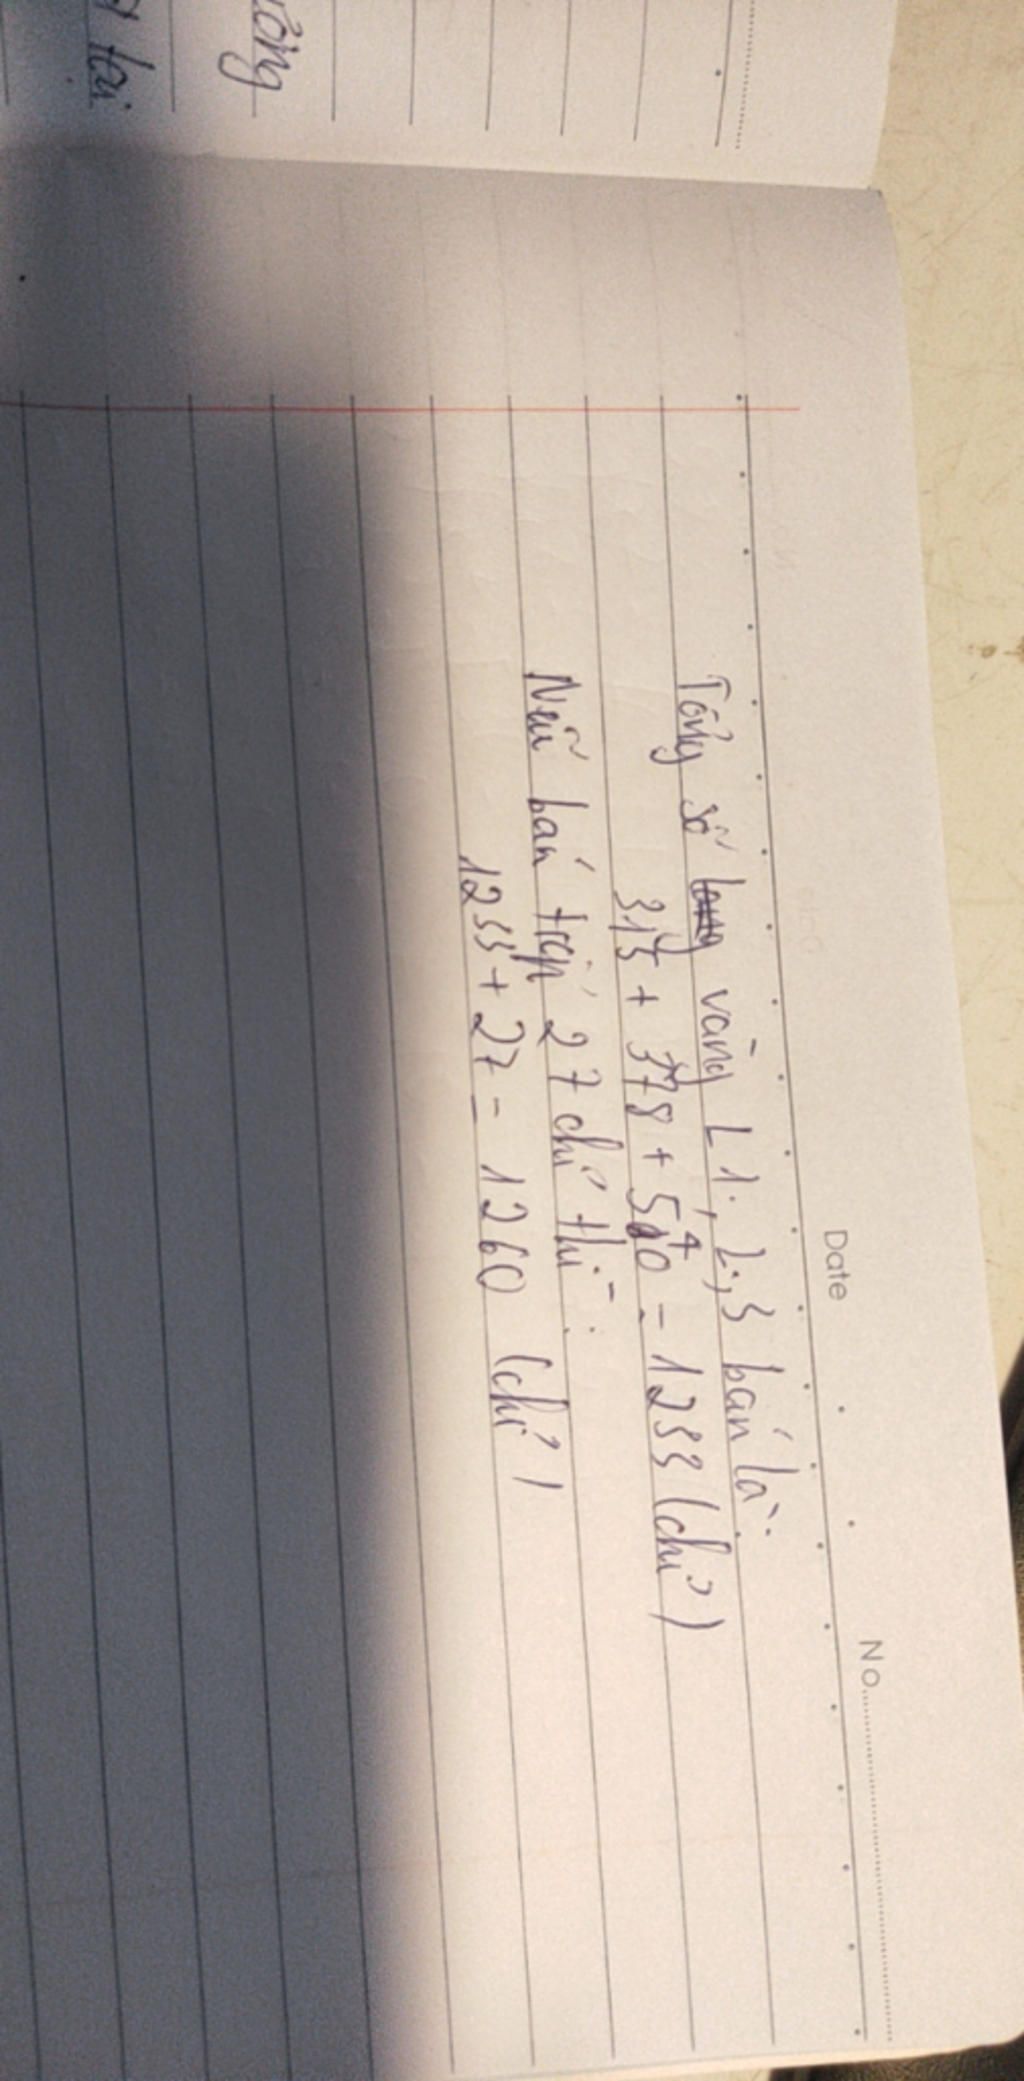 Date No.
Tổng số vàng L1, 2, 3 bán là:
315 + 378 + 540 = 1233 (chỉ)
Nếu bán thêm 27 chỉ thì:
1233 + 27 = 1260 (chỉ)